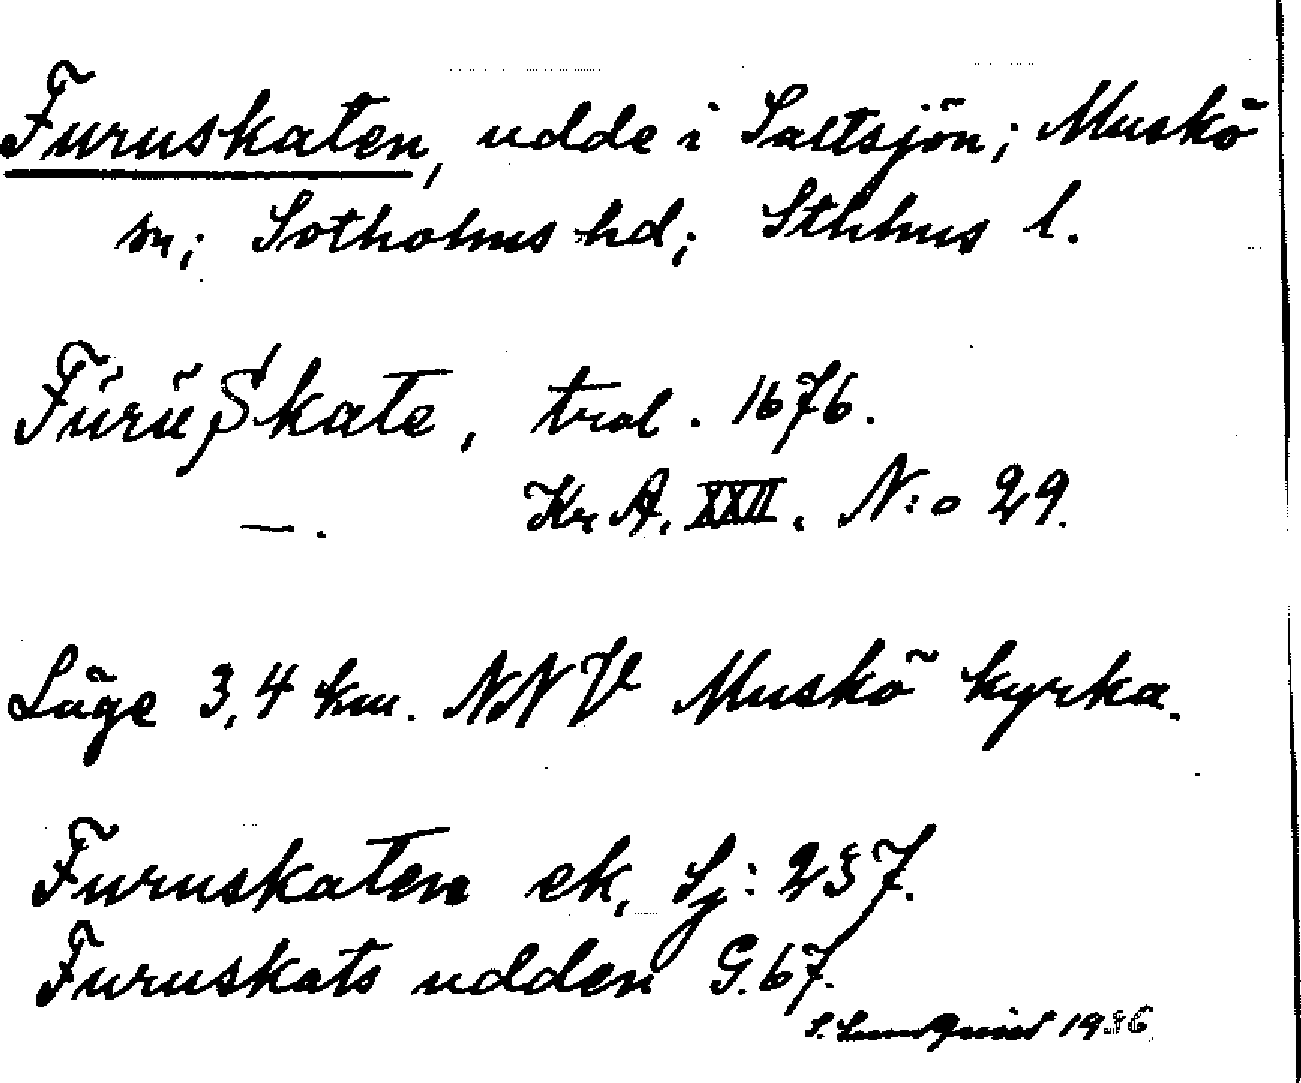 Furuskaten, udde i Saltsjön; Muskö
sn; Sotholms hd; Sthlms l.
Fúrŭ Skate, trol. 1676.
—. Kr A. XXII. N:o 29.
Läge 3,4 km. NNV Muskö kyrka.
Furuskaten ek, Sj: 237.
Furuskats udden G. 67.
S. Lundqvist 1936